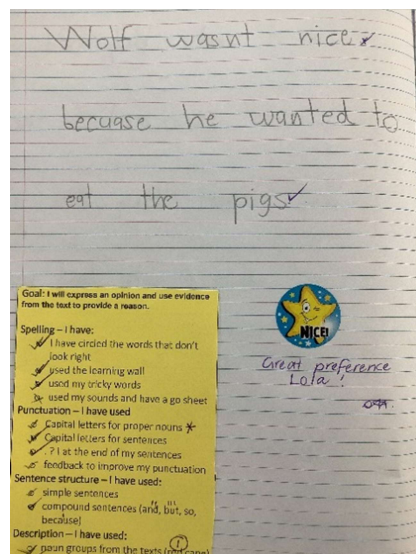 Wolf wasnt nice
becuase he wanted to
eat the pigs
NICE!
Great preference
Lola !
Goal: I will express an opinion and use evidence
from the text to provide a reason.
Spelling – I have:
I have circled the words that don't
look right
used the learning wall
used my tricky words
used my sounds and have a go sheet
Punctuation – I have used
Capital letters for proper nouns *
Capital letters for sentences
. ? ! at the end of my sentences
feedback to improve my punctuation
Sentence structure – I have used:
simple sentences
compound sentences (and, but, so,
because)
Description – I have used:
noun groups from the texts (red cape)